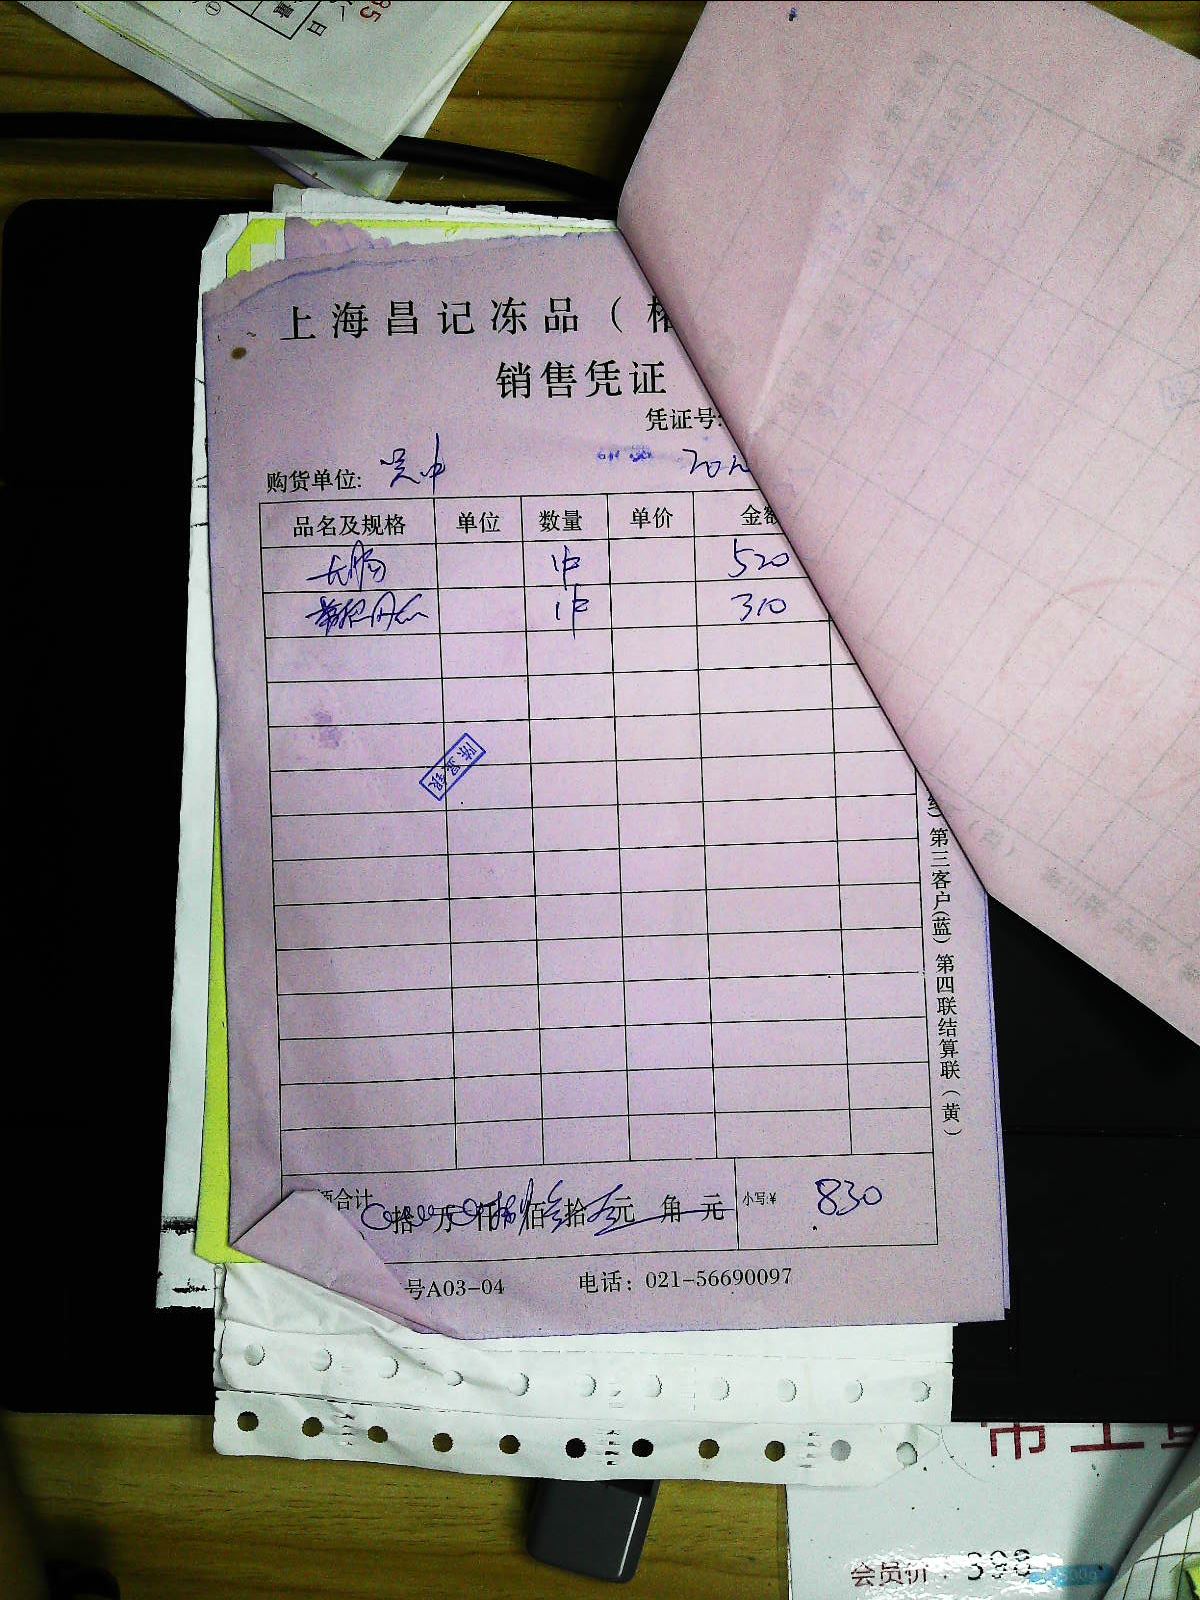 上海昌记冻品（
销售凭证
凭证号:
购货单位: 吴中
品名及规格 单位 数量 单价 金额
大肠 1件 520
1件 310
合计 拾 万 仟 佰 拾 元 角 元 小写:¥ 830
号A03-04 电话: 021-56690097
第三客户(蓝) 第四联结算联(黄)
会员价: 398